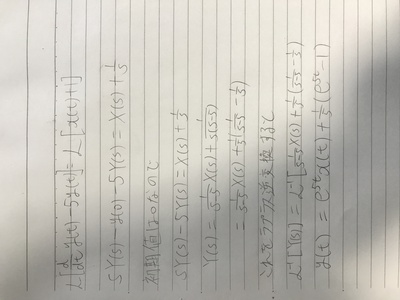 L[d/dt y(t) - 5y(t)] = L[x(t)+1]
sY(s) - y(0) - 5Y(s) = X(s) + 1/s
初期値は0なので
sY(s) - 5Y(s) = X(s) + 1/s
Y(s) = 1/(s-5) X(s) + 1/(s(s-5))
= 1/(s-5) X(s) + 1/5 (1/(s-5) - 1/s)
これをラプラス逆変換すると
L⁻¹[Y(s)] = L⁻¹[1/(s-5) X(s) + 1/5 (1/(s-5) - 1/s)
y(t) = e^{5t} x(t) + 1/5 (e^{5t} - 1)